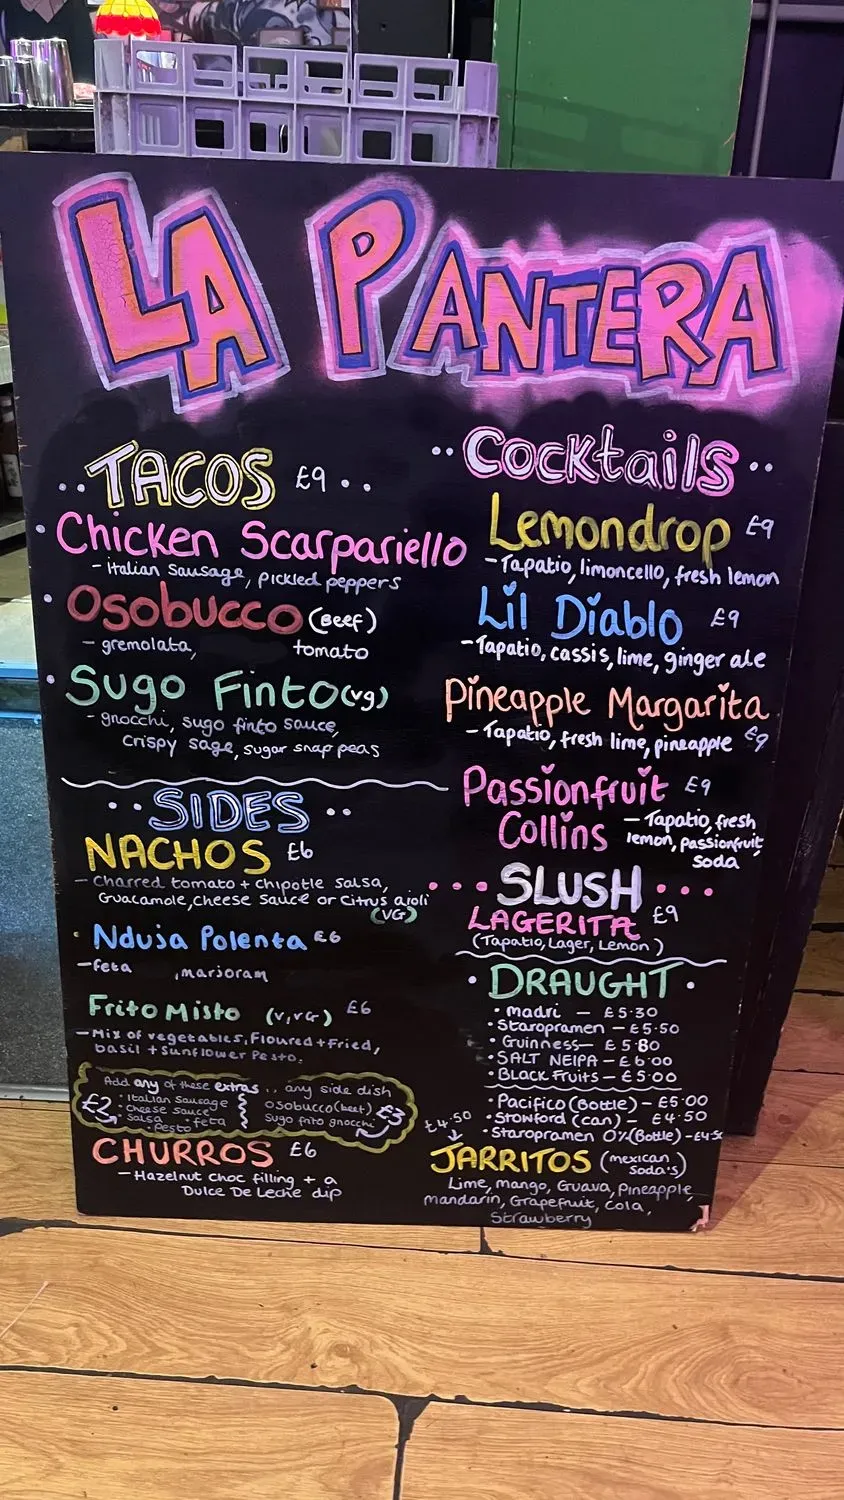 LA PANTERA
TACOS £9
Chicken Scarpariello
- Italian Sausage, pickled peppers
Osobucco (Beef)
- gremolata, tomato
Sugo Finto (vg)
- gnocchi, sugo finto sauce,
crispy sage, sugar snap peas
SIDES
NACHOS £6
- Charred tomato + chipotle salsa,
Guacamole, cheese sauce or citrus aioli
(VG)
Nduja Polenta £6
- feta , marjoram
Frito Misto (V, VG) £6
- Mix of vegetables, Floured + Fried,
basil + sunflower Pesto.
Add any of these extras .. any side dish
£2 · Italian Sausage
· cheese sauce
· salsa · feta
· Pesto
Osobucco (beef) £3
Sugo finto gnocchi
CHURROS £6
- Hazelnut choc filling + a
Dulce De Leche dip
Cocktails
Lemondrop £9
- Tapatio, limoncello, fresh lemon
Lil Diablo £9
- Tapatio, cassis, lime, ginger ale
Pineapple Margarita
- Tapatio, fresh lime, pineapple £9
Passionfruit £9
Collins - Tapatio, fresh
lemon, passionfruit,
soda
SLUSH
LAGERITA £9
(Tapatio, Lager, Lemon)
· DRAUGHT ·
· Madri - £5·30
· Staropramen - £5·50
· Guinness - £5·80
· SALT NEIPA - £6·00
· BLACK FRUITS - £5·00
· Pacifico (Bottle) - £5·00
· Stowford (can) - £4·50
· Staropramen 0% (Bottle) - £4·50
£4·50
JARRITOS (mexican
soda's)
Lime, mango, Guava, Pineapple,
mandarin, Grapefruit, Cola,
Strawberry